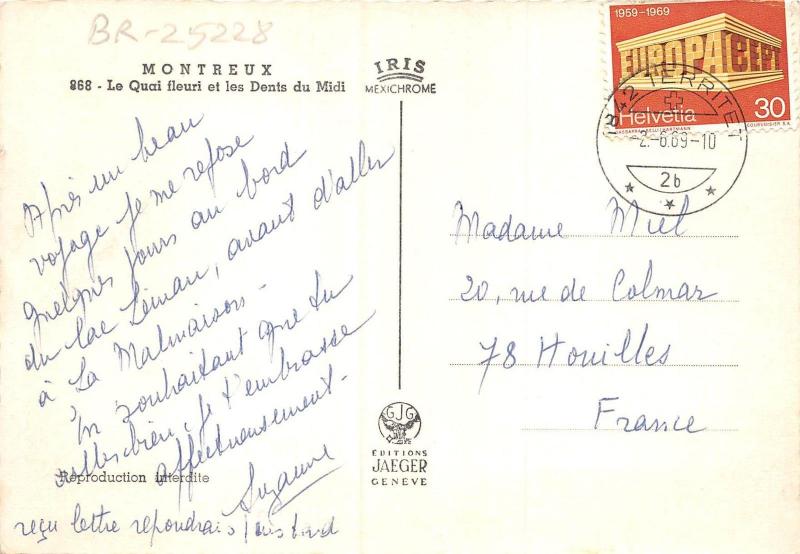 BR-25228
MONTREUX
868 - Le Quai fleuri et les Dents du Midi
IRIS
MEXICHROME
1959-1969
EUROPA CEPT
Helvetia 30
COURVOISIER S.A.
1842 TERRITET
-2.-6.69-10
2b
Après un beau
voyage je me repose
quelques jours au bord
du lac Léman, avant d'aller
à La Malmaison -
En souhaitant que tu
ailles bien, je t'embrasse
affectueusement -
Suzanne
reçu lettre répondrais plus tard
Madame Miel
20, rue de Colmar
78 Houilles
France
GJG
EDITIONS
JAEGER
GENÈVE
Reproduction interdite